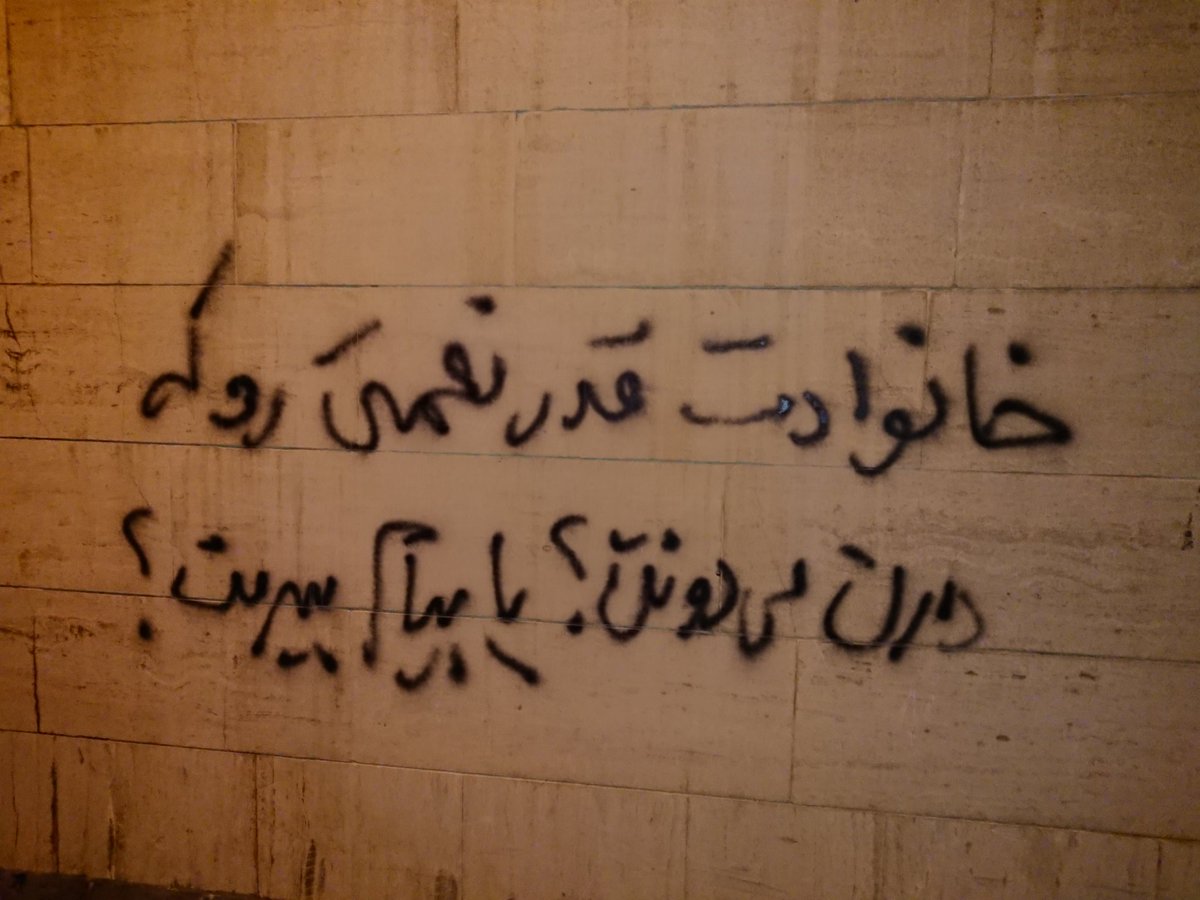 خانوادت قدر نعمتی رو که
دارن می دونن؟ یا بیام ببرمت؟